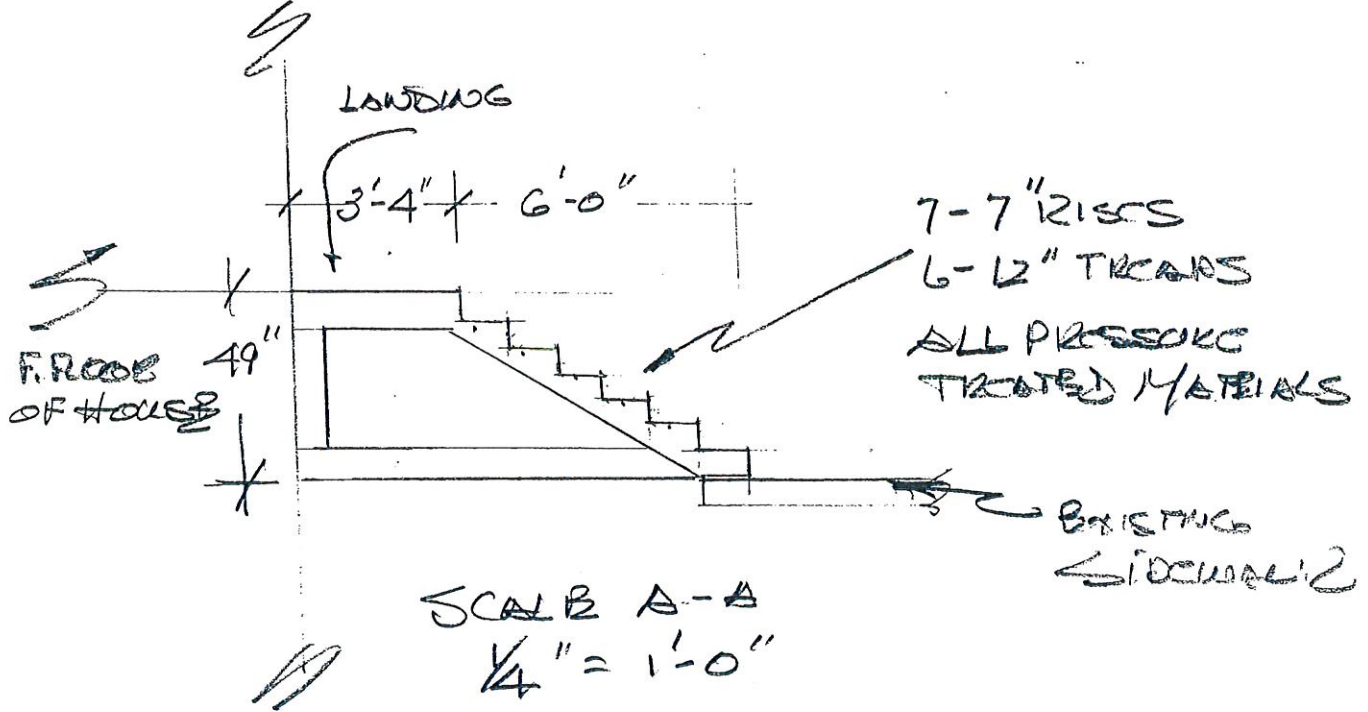 LANDING
3'-4"
6'-0"
7-7" RISES
6-12" TREADS
ALL PRESSURE
TREATED MATERIALS
49"
FLOOR
OF HOUSE
EXISTING
SIDEWALK
SCALE A-A
1/4" = 1'-0"